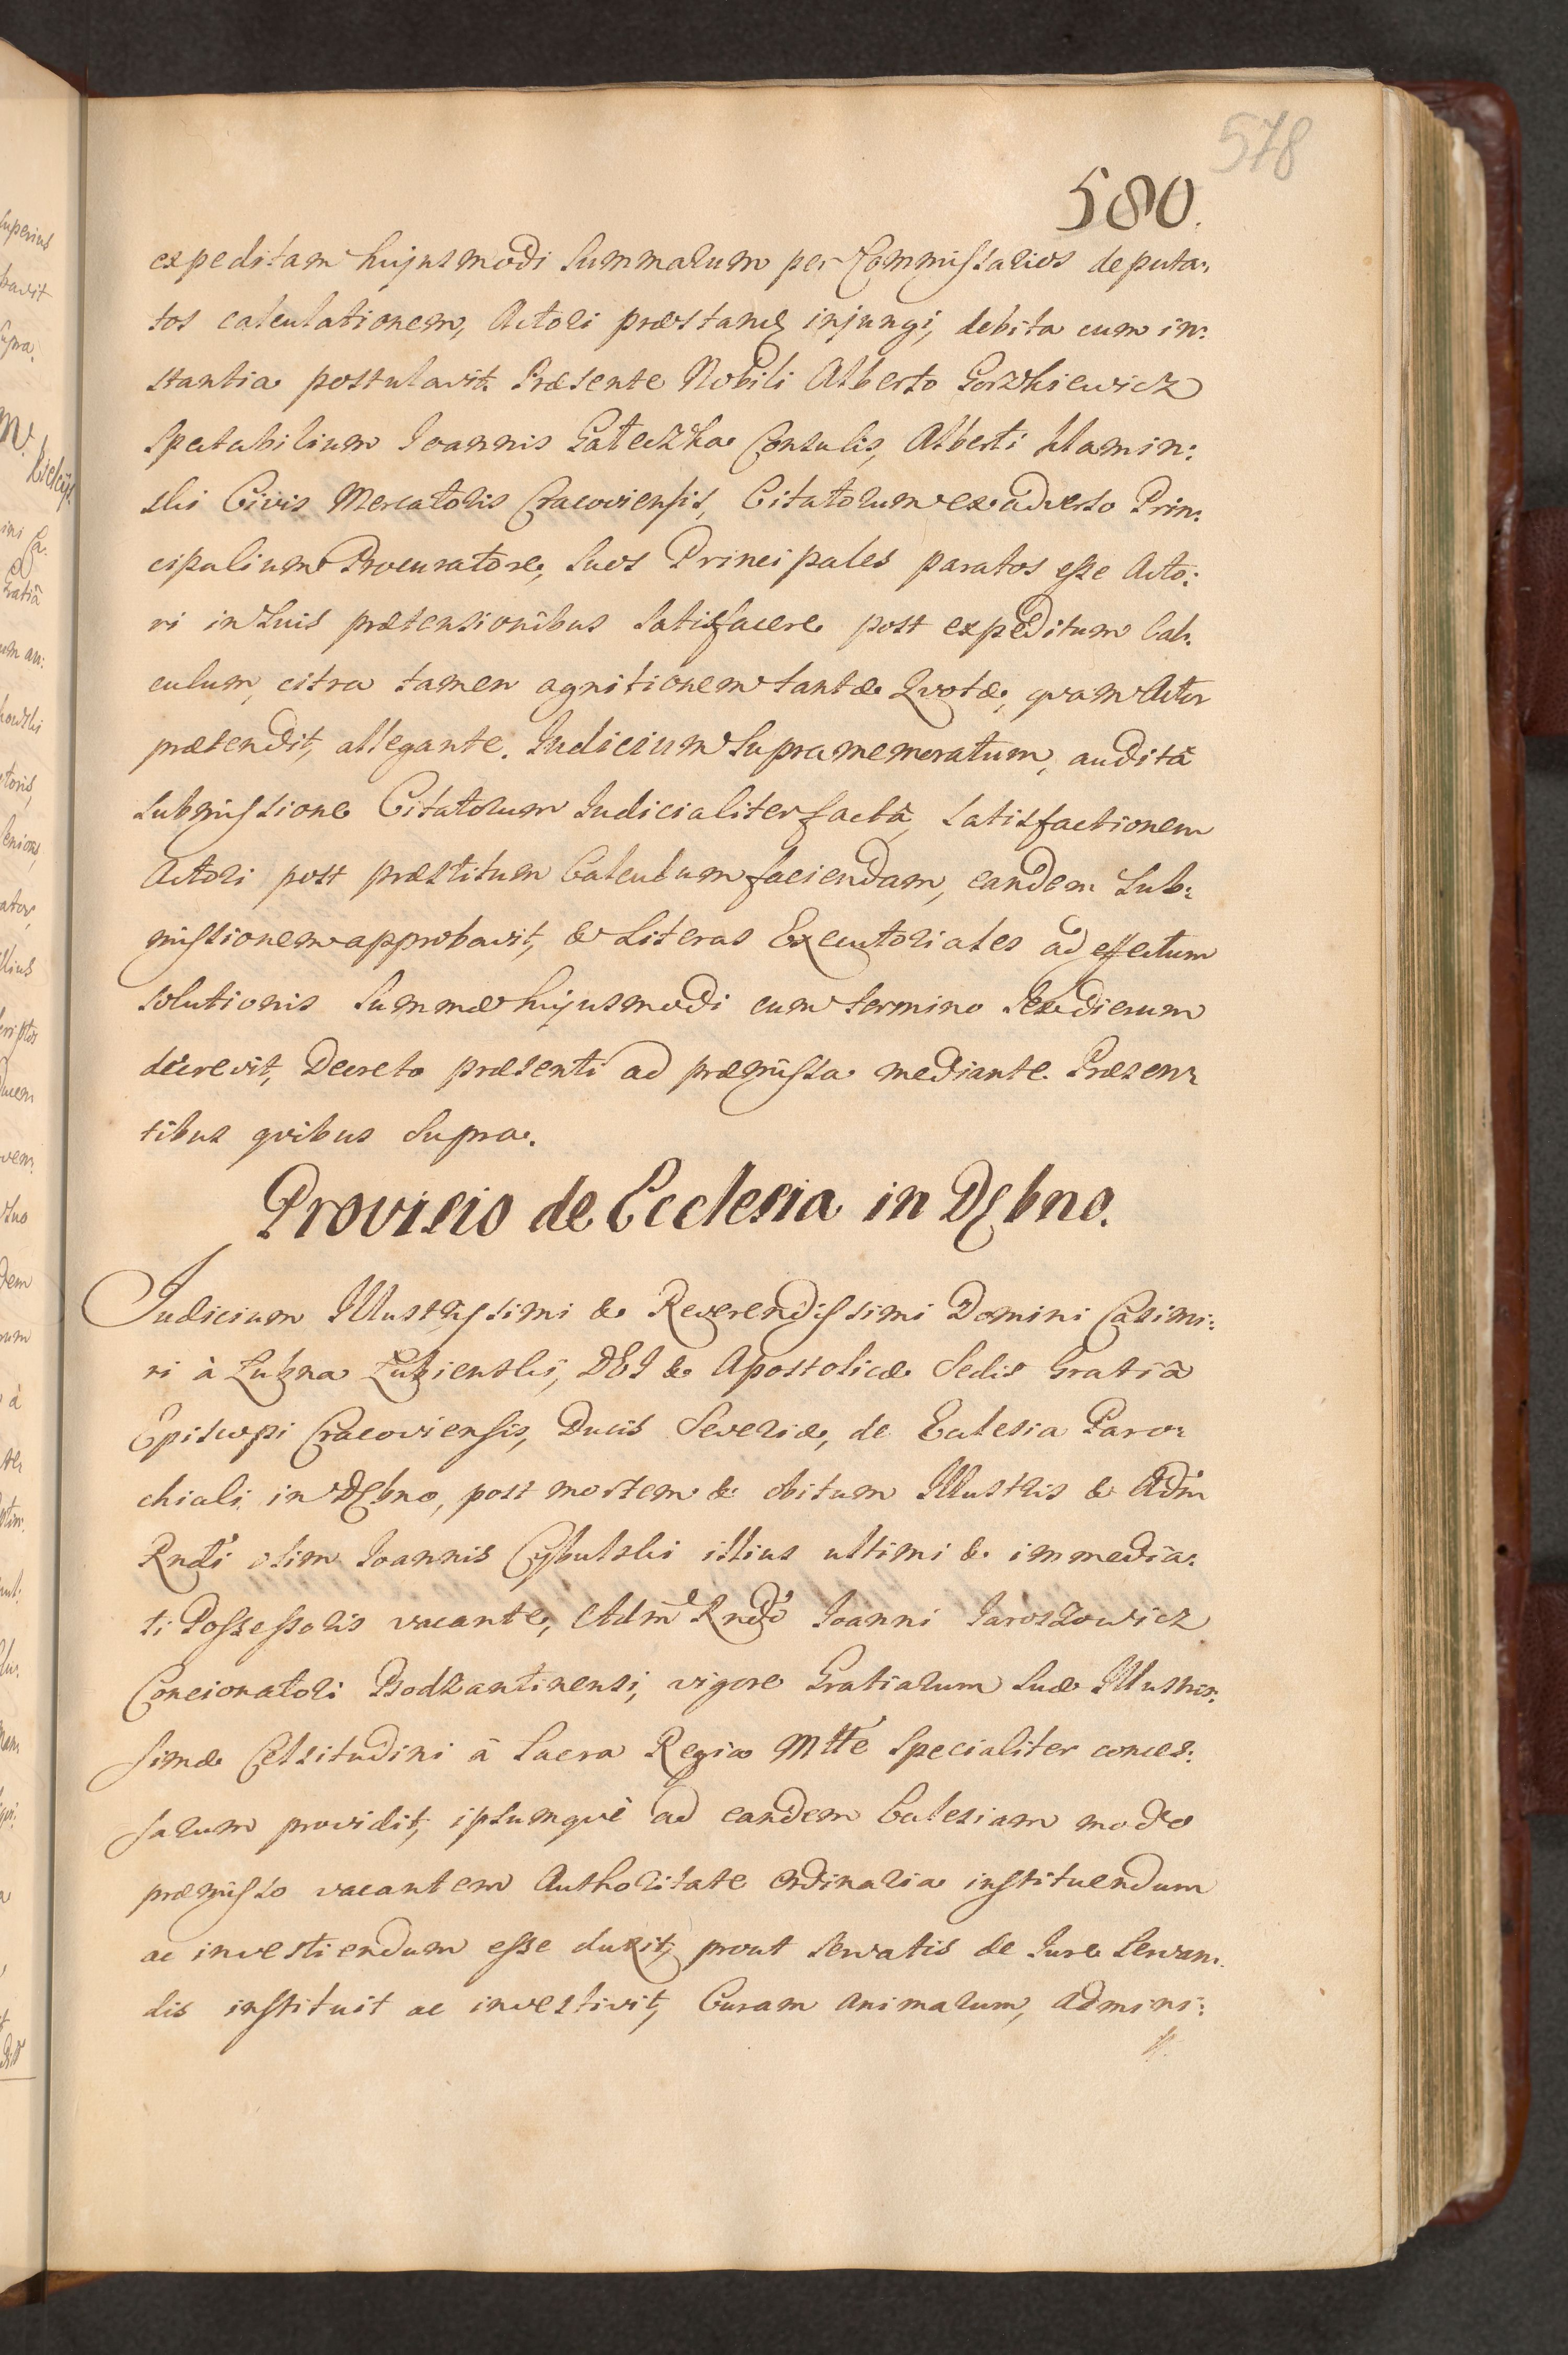 578
580.
expeditam hujusmodi Summarum per Commissarios deputa:
tos calculationem, Actori præstandę injungi, debita cum in:
stantia postulavit. Præsente Nobili Alberto Gorzkiewicz
Spectabilium Joannis Gałeczka Consulis, Alberti Mamin:
ski Civis Mercatoris Cracoviensis, Citatorum ex adverso Prin:
cipalium Procuratore, suos Principales paratos esse Acto:
ri in suis prætensionibus satisfacere post expeditum Cal:
culum, citra tamen agnitionem tantæ Qvotæ, qvam Actor
prætendit, allegante. Judicium Supramemoratum, auditâ
submissione Citatorum Judicialiter factâ, satisfactionem
Actori post præstitum Calculum faciendam, eandem Sub:
missionem approbavit, & Literas Executoriales ad effectum
solutionis Summæ hujusmodi cum termino Sex dierum
decrevit, Decreto præsenti ad præmissa mediante. Præsen:
tibus qvibus supra.
Provisio de Ecclesia in Dębno.
Judicium Illustrissimi & Reverendissimi Domini Casimi:
ri à Łubna Łubienski, DEI & Apostolicæ Sedis Gratiâ
Episcopi Cracoviensis, Ducis Severiæ, de Ecclesia Paro:
chiali in Dębno, post mortem & obitum Illustris & Adm
Rndi olim Joannis Cybulski illius ultimi & immedia:
ti Possessoris vacante, Adm Rndo Joanni Jaroszowicz
Concionatori Bodzantinensi, vigore Gratiarum Suæ Illustris:
simæ Celsitudini à Sacra Regia Mtte specialiter conces:
sarum providit, ipsumqvè ad eandem Ecclesiam modo
præmisso vacantem Authoritate Ordinaria instituendum
ac investiendum esse duxit, prout servatis de Jure servan:
dis instituit ac investivit, Curam Animarum, Admini: